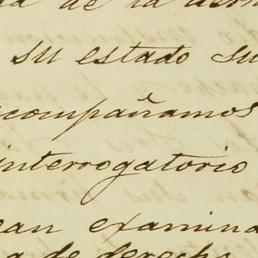 de la
su estado su
compañamos
interrogatorio
ean examina
de derecho